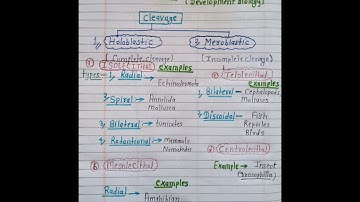 (Development Biology)
Cleavage
1, Holoblastic
2, Meroblastic
(Complete cleavage)
(Incomplete cleavage)
① ISOLECITHAL
types → 1, Radial → Echinodermate
Examples
2, Spiral → Annelida
Mollusca
3, Bilateral → tunicates
4, Rotantional → Mammals
Nematodes
② Mesolecithal
Examples
Radial → Amphibian
① Telolecithal
Examples
1, Bilateral → Cephalopods
Molluscs
2, Discoidal → Fish
Reptiles
Birds
② Centrolecithal
Example → Insect
(Drosophilla)